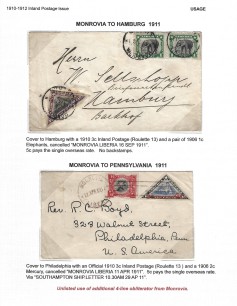 1910-1912 Inland Postage Issue
USAGE
MONROVIA TO HAMBURG 1911
Herrn
W. Sellschopp
Hamburg
Cover to Hamburg with a 1910 3c Inland Postage (Roulette 13) and a pair of 1909 1c
Elephants, cancelled "MONROVIA LIBERIA 16 SEP 1911".
5c pays the single overseas rate. No backstamps.
MONROVIA TO PENNSYLVANIA 1911
Rev. P. C. Boyd,
328 Walnut Street,
Philadelphia, Penn
U. S. America
Cover to Philadelphia with an Official 1910 3c Inland Postage (Roulette 13 ) and a 1906 2c
Mercury, cancelled "MONROVIA LIBERIA 11 APR 1911". 5c pays the single overseas rate.
Via "SOUTHAMPTON SHIP LETTER 10.30AM 29 AP 11".
Unlisted use of additional 4-line obliterator from Monrovia.